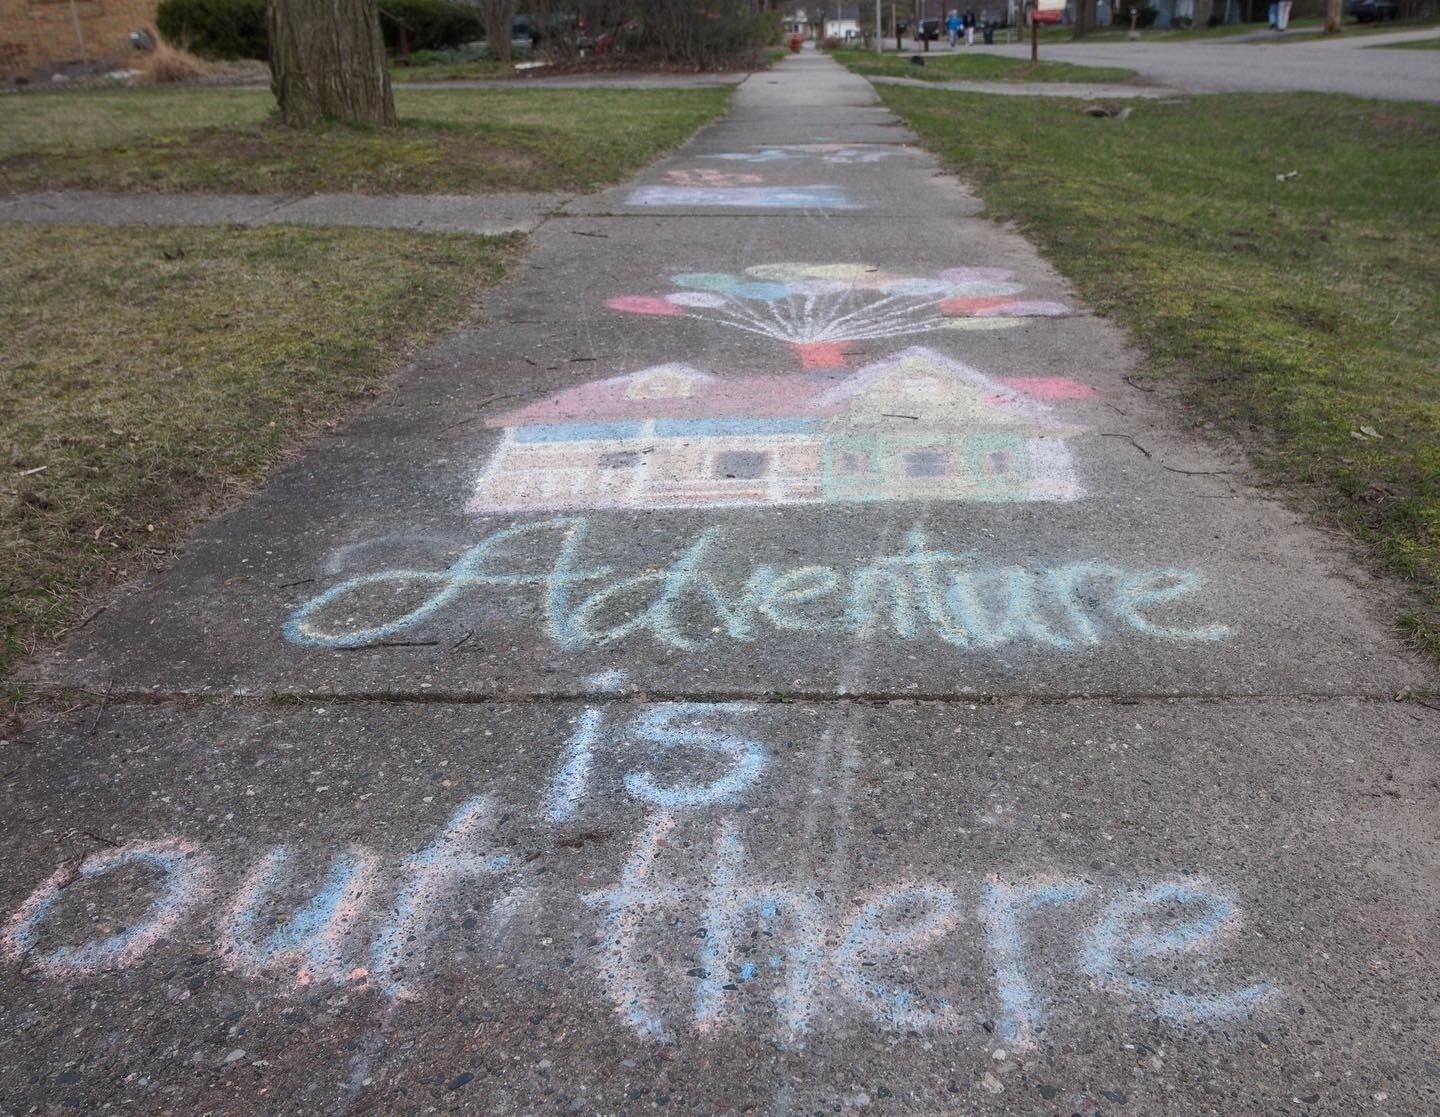 Adventure
is
out there